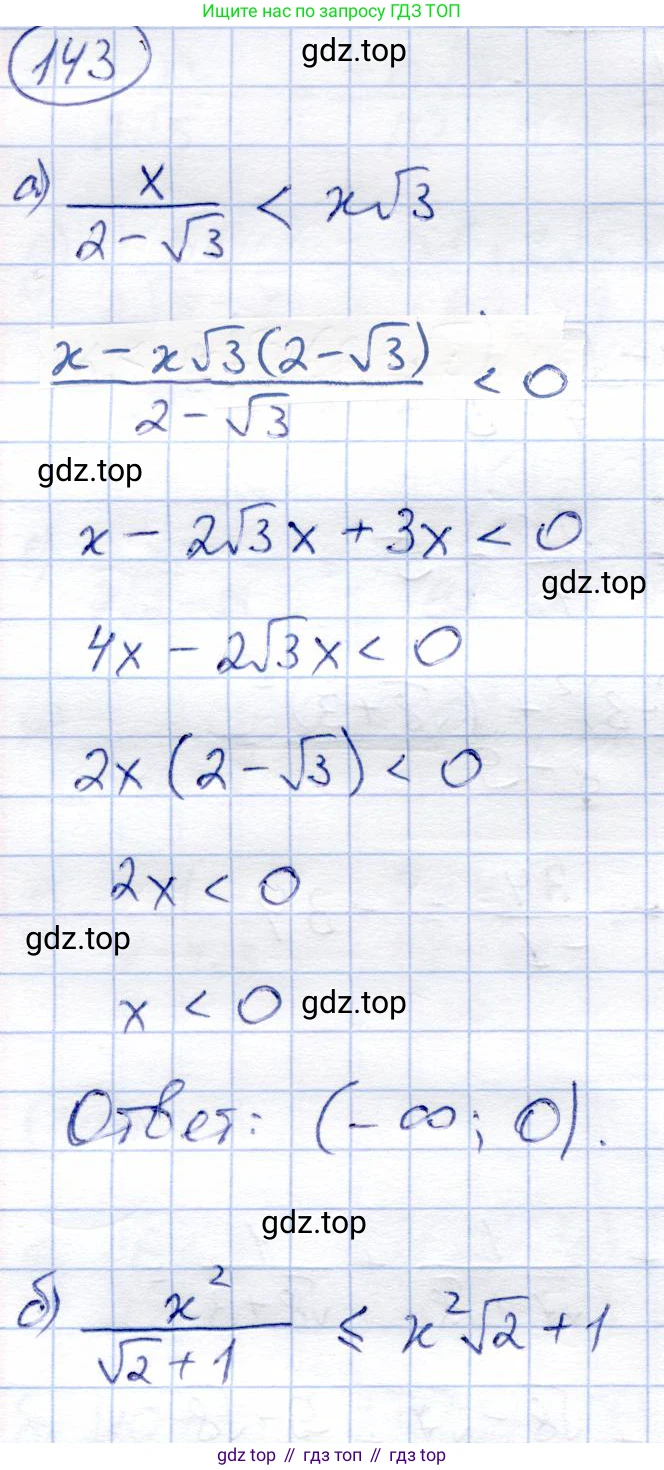 Ищите нас по запросу ГДЗ ТОП
143
gdz.top
а) x / (2 - √3) < x√3
(x - x√3(2 - √3)) / (2 - √3) < 0
gdz.top
x - 2√3x + 3x < 0
gdz.top
4x - 2√3x < 0
2x(2 - √3) < 0
2x < 0
gdz.top
x < 0
gdz.top
Ответ: (-∞; 0).
gdz.top
б) x² / (√2 + 1) ⩽ x²√2 + 1
gdz top // гдз топ // gdz top